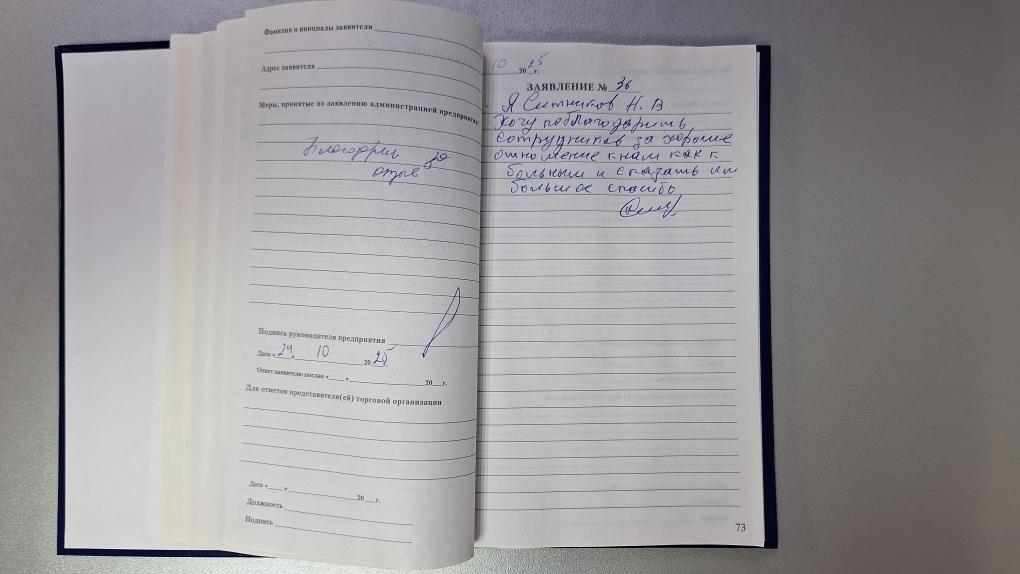 Фамилия и инициалы заявителя
Адрес заявителя
Меры, принятые по заявлению администрацией предприятия:
Благодарим за
отзыв
Подпись руководителя предприятия
Дата « 24 » 10 20 25
Ответ заявителю послан « » 20 г.
Для отметок представителя(ей) торговой организации
Дата « » 20 г.
Должность
Подпись
10 20 25 г.
ЗАЯВЛЕНИЕ № 36
Я Ситников Н. В.
Хочу поблагодарить
сотрудников за хорошие
отношение к нам как к
больным и сказать им
большое спасибо
73